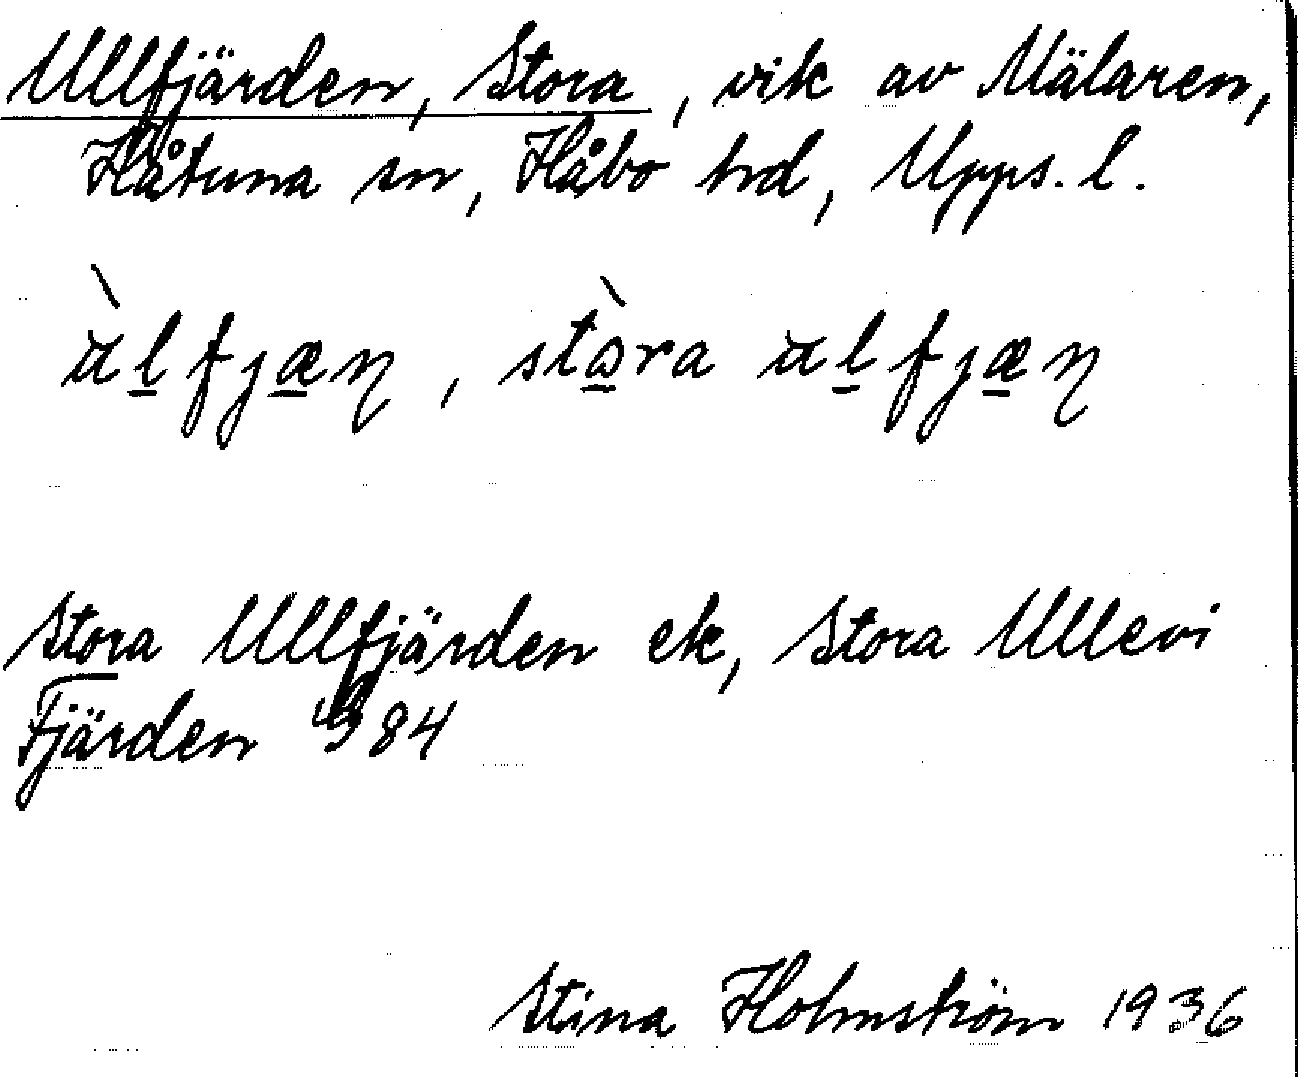 Ullfjärden, Stora, vik av Mälaren,
Håtuna sn, Håbo hd, Upps. l.
ùl̲fjæ̲ɳ, stɷ̲̀ra ul̲fjæ̲ɳ
Stora Ullfjärden ek, Stora Ullevi
Fjärden 84
Stina Holmström 1936